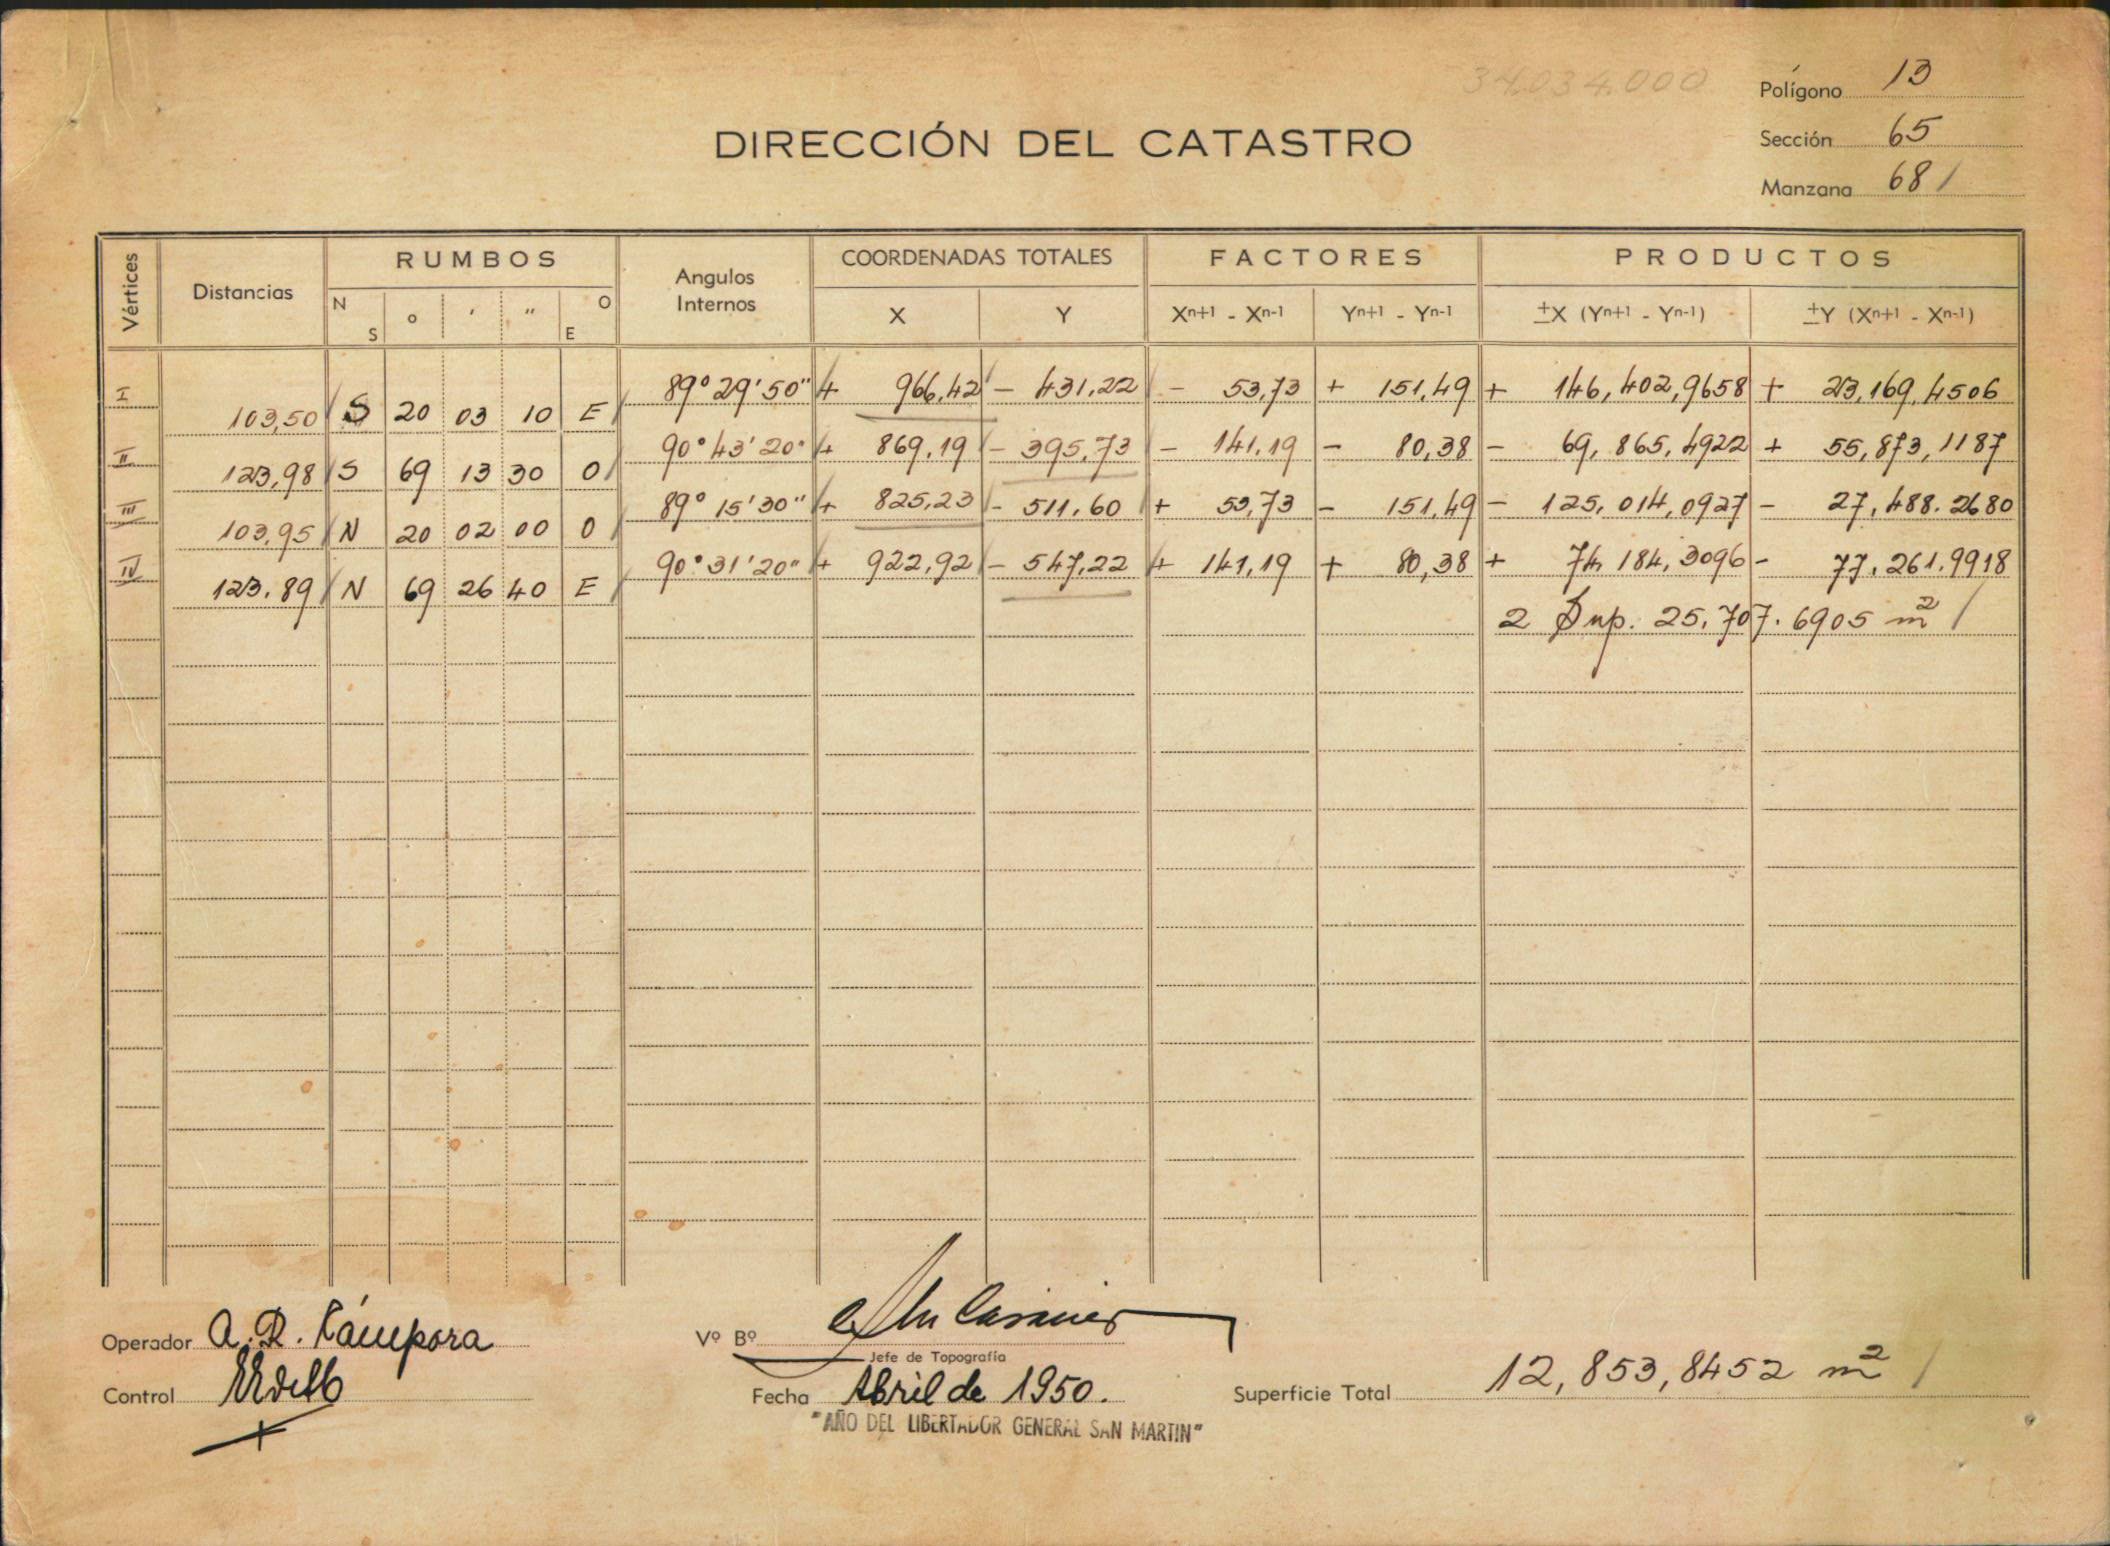 34.034.000
Polígono 13
DIRECCIÓN DEL CATASTRO
Sección 65
Manzana 68 /
Vértices Distancias RUMBOS Angulos Internos COORDENADAS TOTALES FACTORES PRODUCTOS
N S o ' " O E X Y Xn+1 - Xn-1 Yn+1 - Yn-1 ±X (Yn+1 - Yn-1) ±Y (Xn+1 - Xn-1)
I 89° 29' 50" + 966,42 - 431,22 - 53,73 + 151,49 + 146,402,9658 + 23,169,4506
103,50 S 20 03 10 E
II 90° 43' 20" + 869,19 - 395,73 - 141,19 - 80,38 - 69,865,4922 + 55,873,1187
123,98 S 69 13 30 O
III 89° 15' 30" + 825,23 - 511,60 + 53,73 - 151,49 - 125,014,0927 - 27,488.2680
103,95 N 20 02 00 O
IV 90° 31' 20" + 922,92 - 547,22 + 141,19 + 80,38 + 74,184,3096 - 77,261,9918
123,89 N 69 26 40 E
2 Sup. 25,707.6905 m2 /
Operador A. R. Cámpora
Vº Bº
Jefe de Topografía
Control
Fecha Abril de 1950.
Superficie Total 12,853,8452 m2 /
"AÑO DEL LIBERTADOR GENERAL SAN MARTIN"